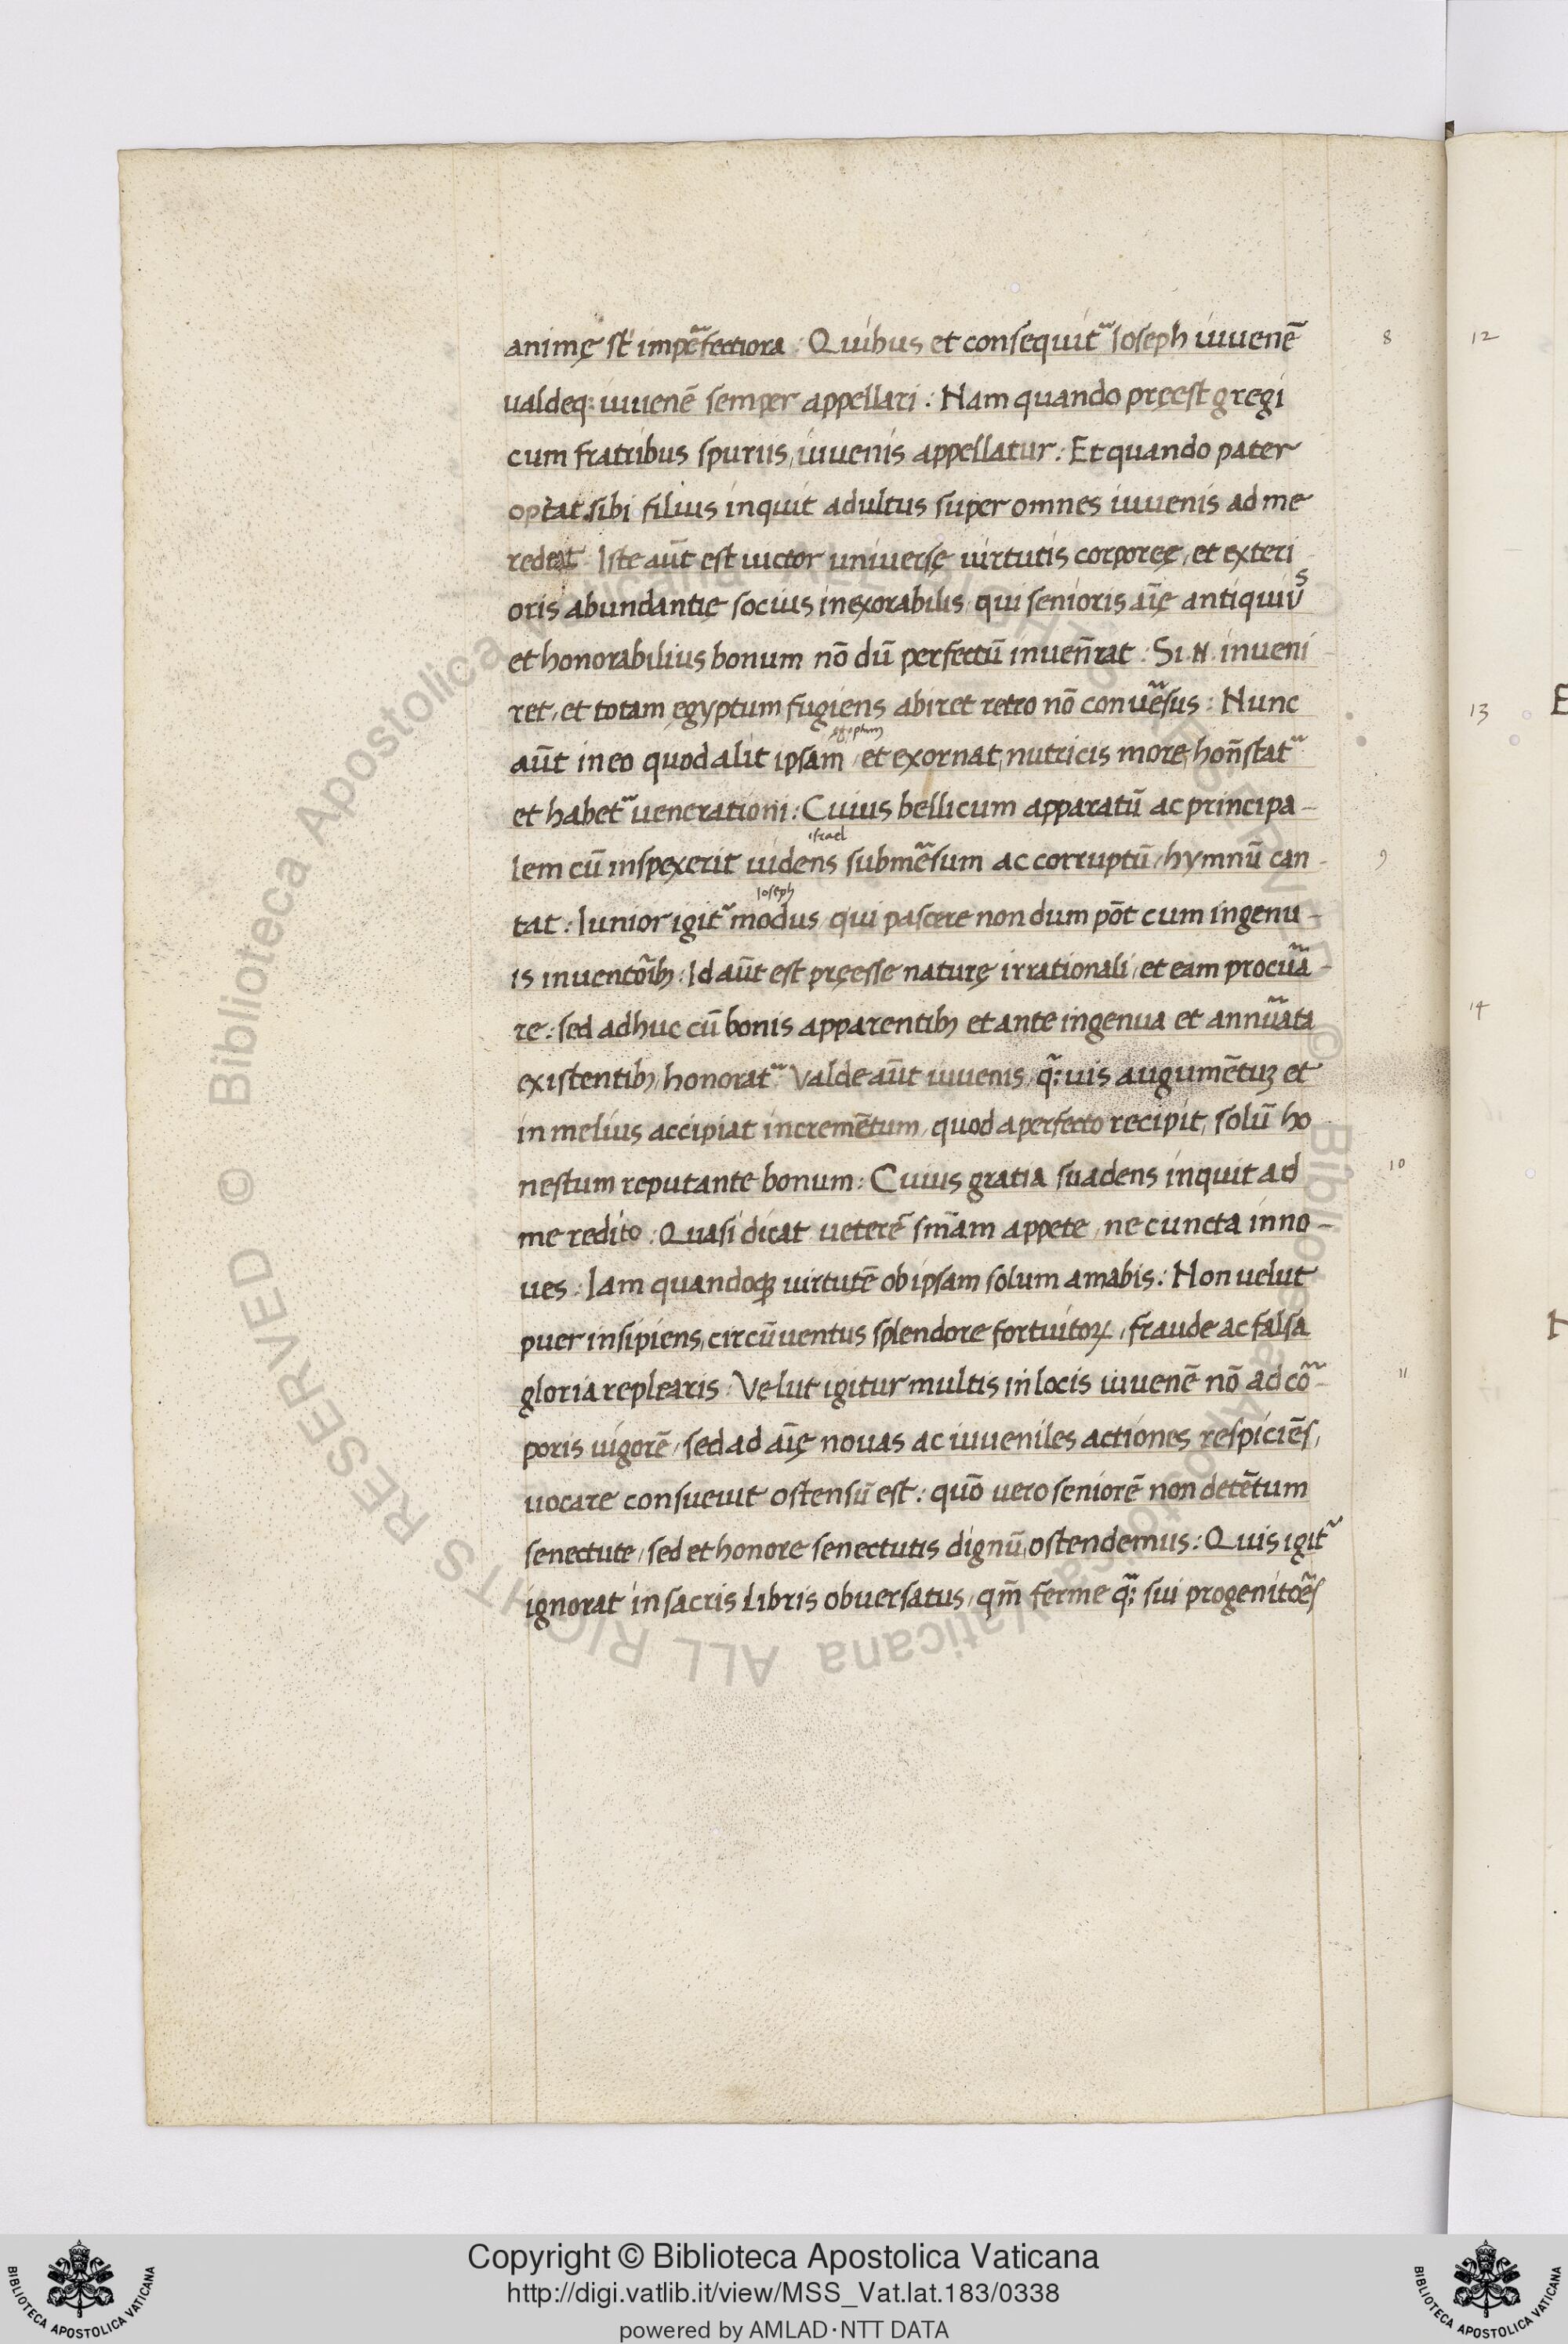 animę st̄ imp̃fectiora : Quibus et consequit᷑ Ioseph iuuenē 8
ualdeq: iuuenē semper appellari : Nam quando pręest gregi
cum fratribus spuriis, iuuenis appellatur : Et quando pater
optat sibi filius inquit adultus super omnes iuuenis ad me
redeat Iste aūt est uictor uniuersę uirtutis corporeę, et exteri
oris abundantię socius inexorabilis, qui senioris aīę antiquiūs
et honorabilius bonum nō dū perfectū inueñrat : Si .N. inueni
ret, et totam ęgyptum fugiens abiret retro nō conuẽsus : Nunc
aūt in eo quod alit ipsam, et exornat, nutricis more, hoñstat᷑
et habet᷑ uenerationi : Cuius bellicum apparatū ac principa-
israel
lem cū inspexerit uidens submẽsum ac corruptū, hymnū can- 9
Ioseph
tat : Iunior igit᷑ modus, qui pascere non dum pōt cum ingenu-
is inuentõib; : Id aūt est pręesse naturę irrationali, et eam procũa-
re : sed adhuc cū bonis apparentib; et ante ingenua et annũata
existentib; honorat᷑ : Valde aūt iuuenis, q̃: uis augumētuʒ et
in melius accipiat incremētum, quod a perfecto recipit, solū ho
nestum reputante bonum : Cuius gratia suadens inquit ad 10
me redito : Quasi dicat ueterē smāam appete, ne cuncta inno-
ues : Iam quandoq; uirtutē ob ipsam solum amabis : Non uelut
puer insipiens, circūuentus splendore fortuitoꝝ, fraude ac falsa
gloria replearis : Velut igitur multis in locis iuuenē nō ad cõ- 11
poris uigorē, sed ad aīę nouas ac iuueniles actiones respiciēs,
uocare consueuit ostensū est : quō uero seniorē non detētum
senectute, sed et honore senectutis dignū, ostendemus : Quis igit᷑
ignorat in sacris libris obuersatus, qm̄ ferme q̃: sui progenitoẽs
12
13
E
14
Copyright © Biblioteca Apostolica Vaticana
http://digi.vatlib.it/view/MSS_Vat.lat.183/0338
powered by AMLAD·NTT DATA
BIBLIOTECA APOSTOLICA VATICANA
BIBLIOTECA APOSTOLICA VATICANA
© Biblioteca Apostolica Vaticana ALL RIGHTS RESERVED